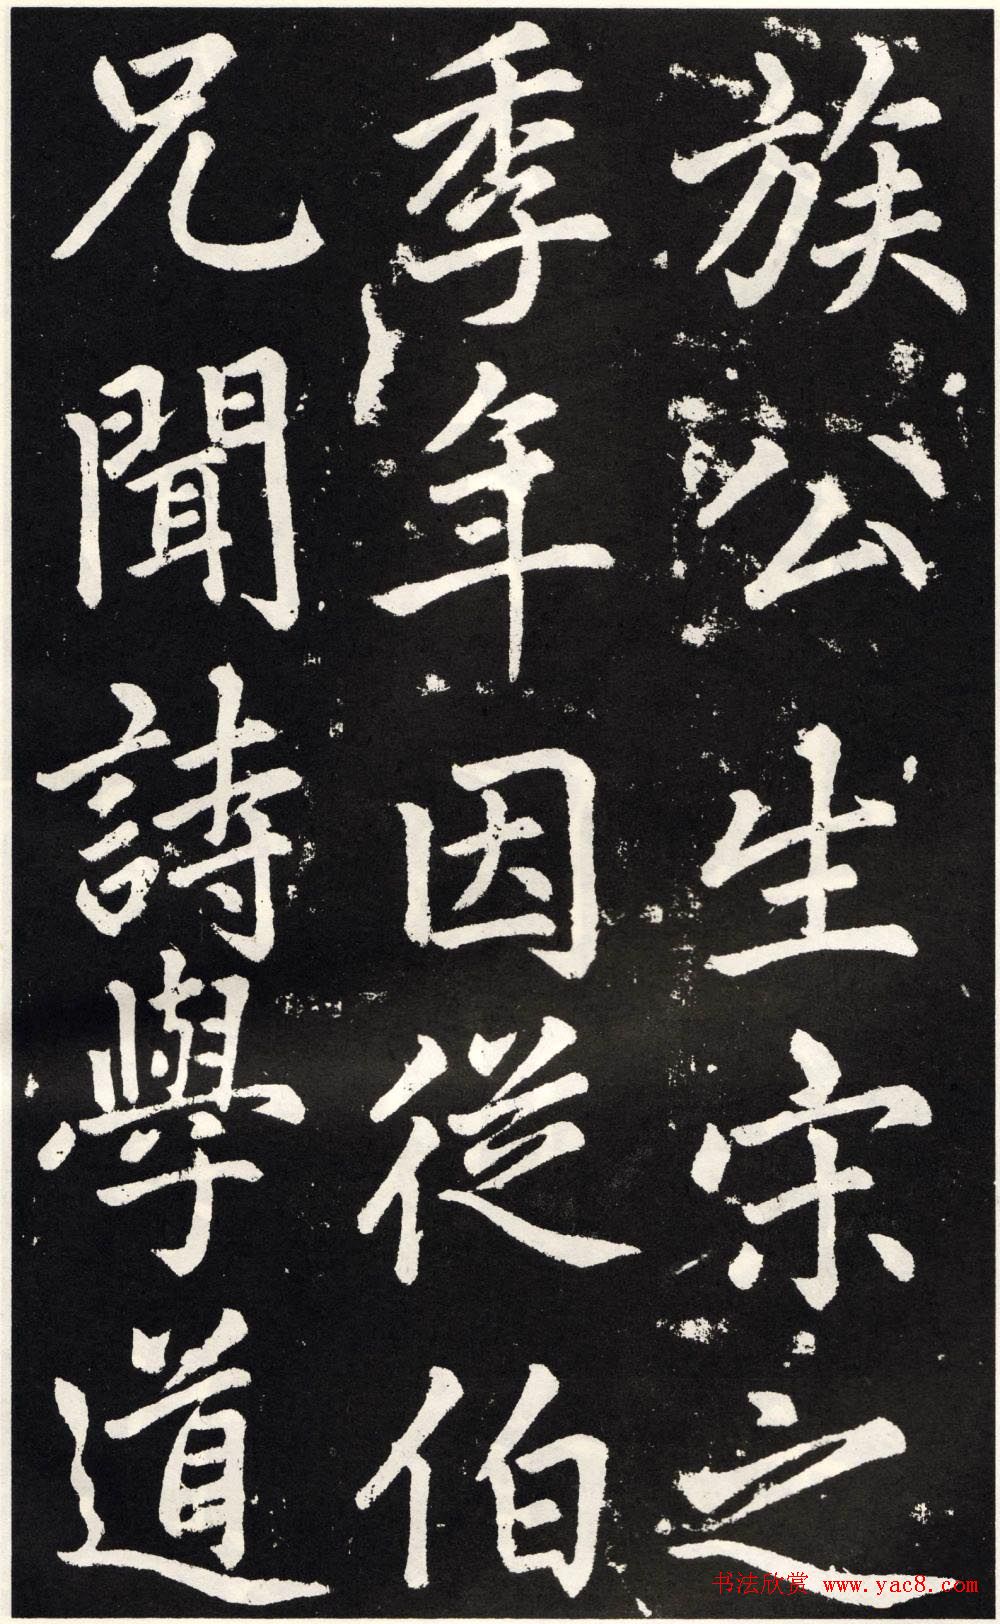 族公生宋之
季年因從伯
兄聞詩學道
书法欣赏 www.yac8.com